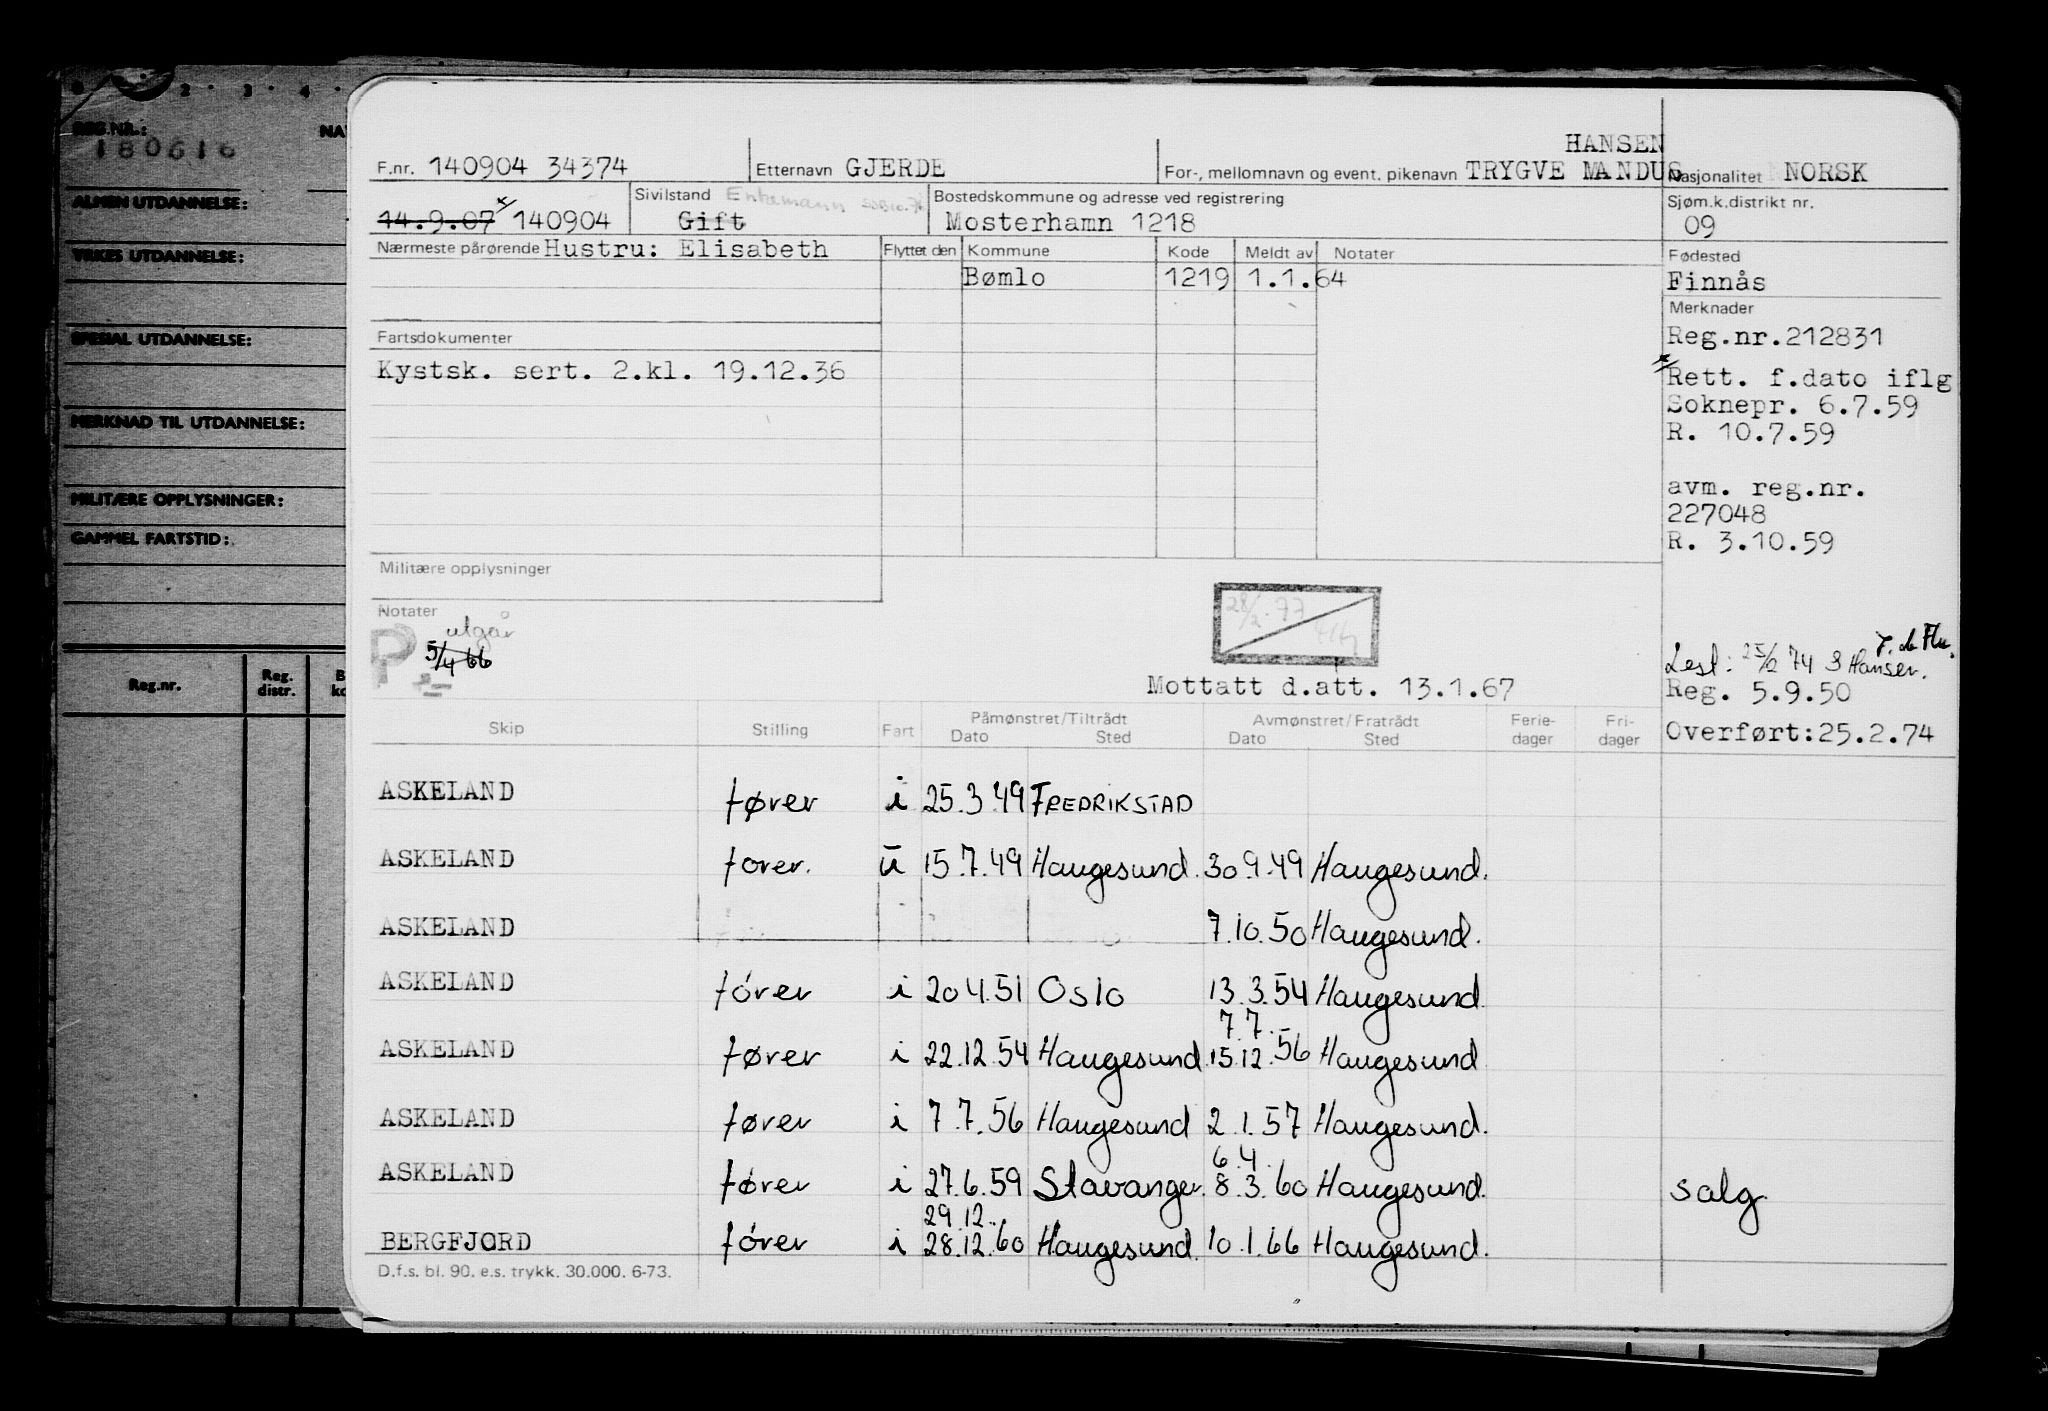 2 · 3 · 4 ·
REG.NR.:
180616
ALMEN UTDANNELSE:
YRKES UTDANNELSE:
SPESIAL UTDANNELSE:
MERKNAD TIL UTDANNELSE:
MILITÆRE OPPLYSNINGER:
GAMMEL FARTSTID:
Reg.nr.
Reg. distr.
HANSEN
F.nr. 140904 34374 Etternavn GJERDE For-, mellomnavn og event. pikenavn TRYGVE MANDUS Nasjonalitet NORSK
Sivilstand Enkemann Bostedskommune og adresse ved registrering Sjøm.k.distrikt nr.
14.9.07 * 140904 Gift Mosterhamn 1218 09
Nærmeste pårørende Hustru: Elisabeth Flyttet den Kommune Kode Meldt av Notater Fødested
Bømlo 1219 1.1.64 Finnås
Merknader
Fartsdokumenter Reg.nr.212831
Kystsk. sert. 2.kl. 19.12.36 * Rett. f.dato iflg
Soknepr. 6.7.59
R. 10.7.59
avm. reg.nr.
227048
R. 3.10.59
Militære opplysninger
Notater 28/2.77
utgår
5/4 66
Lest: 25/2 74 S Hansen.
Mottatt d.att. 13.1.67 Reg. 5.9.50
Skip Stilling Fart Påmønstret/Tiltrådt Avmønstret/Fratrådt Ferie- Fri- Overført:25.2.74
Dato Sted Dato Sted dager dager
ASKELAND fører i 25.3.49 FREDRIKSTAD
ASKELAND fører. u 15.7.49 Haugesund. 30.9.49 Haugesund.
ASKELAND 7.10.50 Haugesund.
ASKELAND fører i 20.4.51 Oslo 13.3.54 Haugesund
7.7.
ASKELAND fører i 22.12.54 Haugesund 15.12.56 Haugesund
ASKELAND fører i 7.7.56 Haugesund 2.1.57 Haugesund.
6.4.
ASKELAND fører i 27.6.59 Stavanger. 8.3.60 Haugesund. salg
29.12.
BERGFJORD fører i 28.12.60 Haugesund. 10.1.66 Haugesund.
D.f.s. bl. 90. e.s. trykk. 30.000. 6-73.